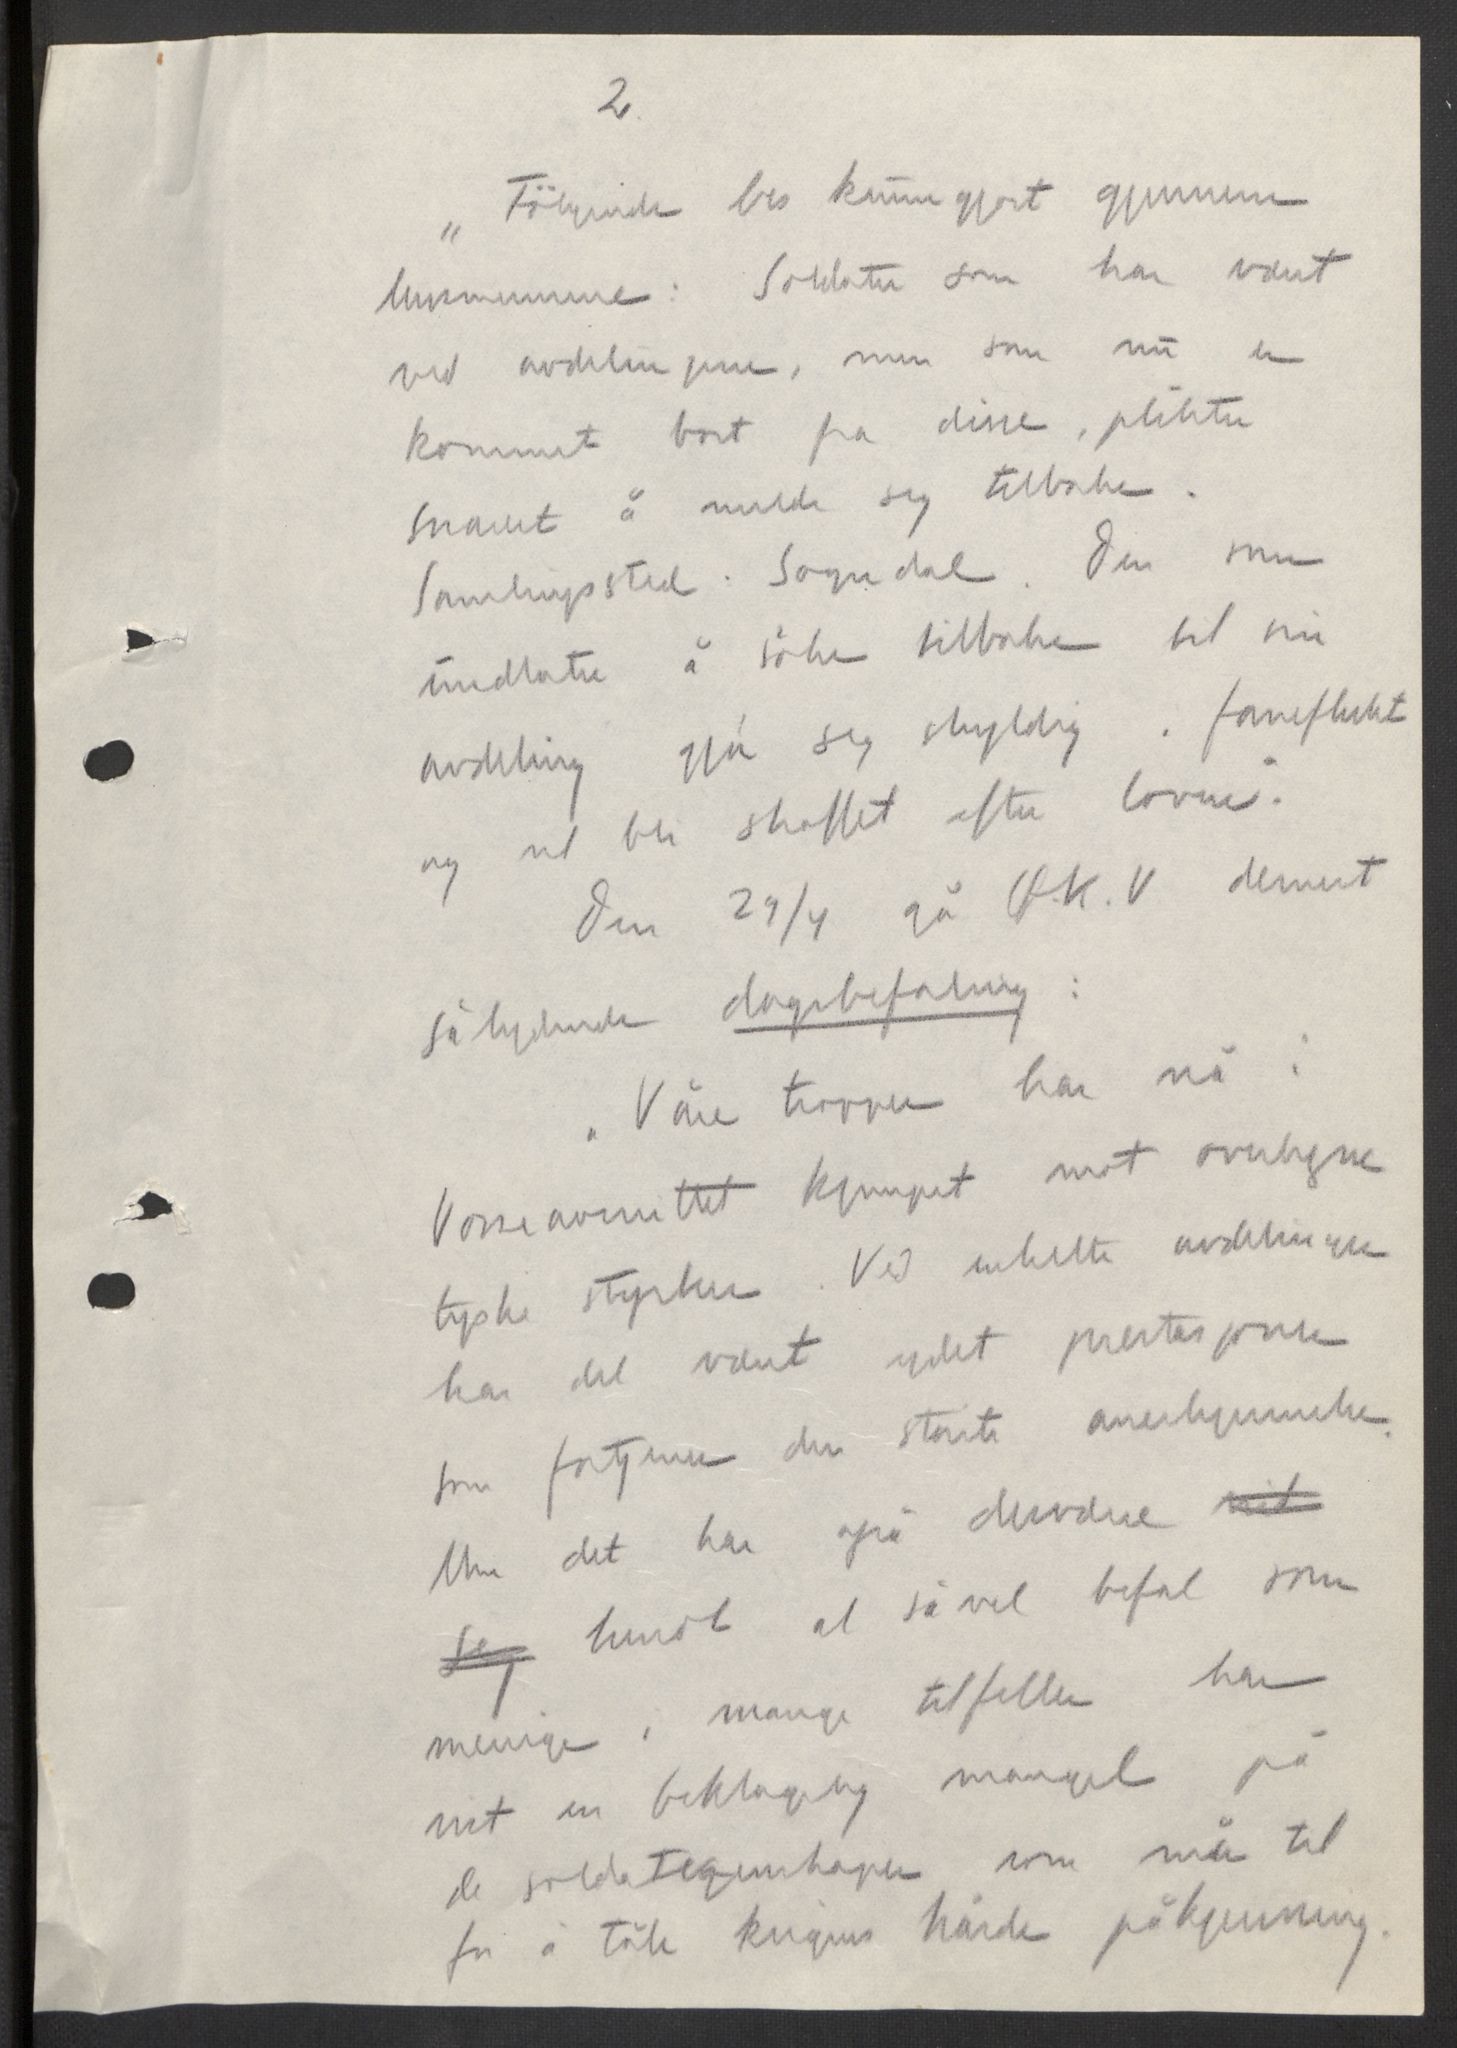 2.
„Følgende bes kunngjort gjennem
lensmennene: Soldater som har vært
ved avdelingene, men som nu er
kommet bort fra disse, plikter
snarest å melde seg tilbake.
Samlingssted: Sogndal. Den som
undlater å søke tilbake til sin
avdeling gjør seg skyldig i faneflukt
og vil bli straffet efter loven".
Den 29/4 ga D.K.V dernest
sålydende dagsbefaling:
„Våre tropper har nå i
Vosseavsnittet kjempet mot overlegne
tyske styrker. Ved enkelte avdelinger
har det vært ydet prestasjoner
som fortjener den største anerkjennelse.
Men det har også dessverre vist
seg hendt at såvel befal som
menige i mange tilfeller har
vist en beklagelig mangel på
de soldategenskaper som må til
for å tåle krigens hårde påkjenning.